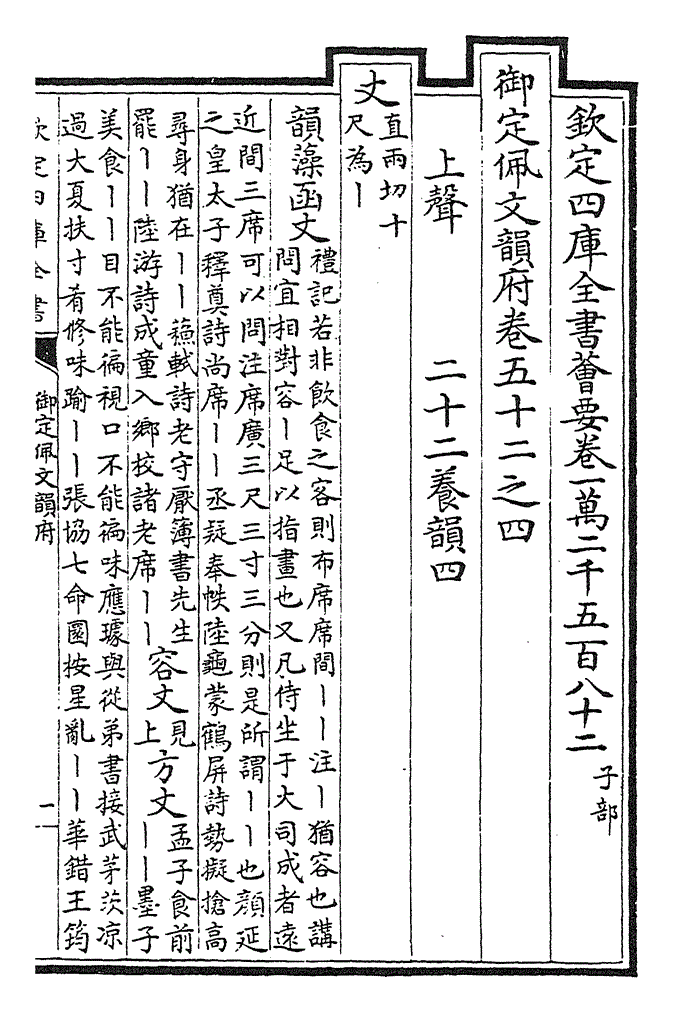 欽定四庫全書薈要卷一萬二千五百八十二 子部
御定佩文韻府卷五十二之四
上聲 二十二養韻四
丈
直兩切十
尺為丨
韻藻函丈
禮記若非飲食之客則布席席間丨丨注丨猶容也講
問宜相對容丨足以指畫也又凡侍坐于大司成者遠
近間三席可以問注席廣三尺三寸三分則是所謂丨丨也顔延
之皇太子釋奠詩尚席丨丨丞疑奉帙陸龜蒙鶴屏詩勢擬搶高
尋身猶在丨丨蘓軾詩老守厭簿書先生
罷丨丨陸游詩成童入鄉校諸老席丨丨
容丈
見
上
方丈
孟子食前
丨丨墨子
美食丨丨目不能徧視口不能徧味應璩與從弟書接武茅茨凉
過大夏扶寸肴修味踰丨丨張協七命圜按星亂丨丨華錯王筠
欽定四庫全書
御定佩文韻府